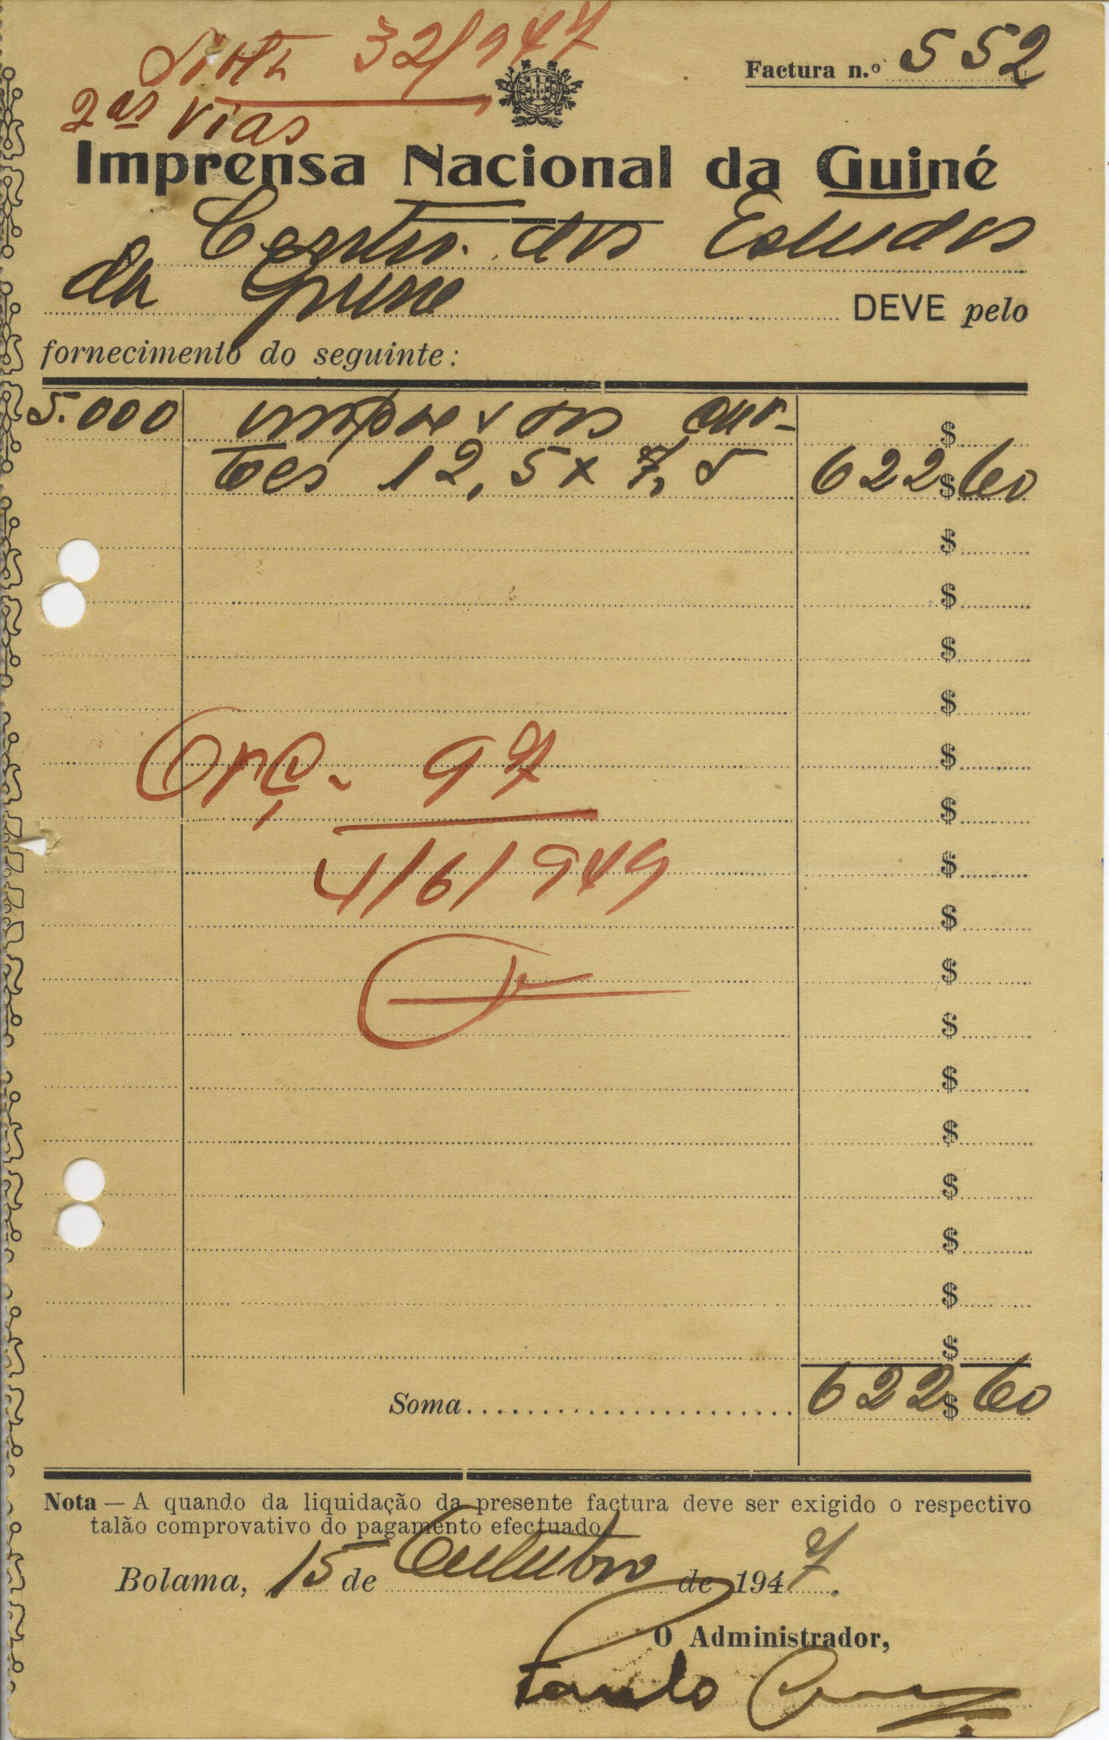 Nota 32/947
2as vias
Factura n.º 552
Imprensa Nacional da Guiné
Centro dos Estudos
da Guiné
DEVE pelo
fornecimento do seguinte:
5.000 impressos car- $
tões 12,5 x 7,5 622$60
$
$
$
$
$
$
$
$
$
$
$
$
$
$
$
$
Orç. 97
4/6/949
Soma 622$60
Nota — A quando da liquidação da presente factura deve ser exigido o respectivo
talão comprovativo do pagamento efectuado.
Bolama, 15 de Outubro de 1947.
O Administrador,
Paulo